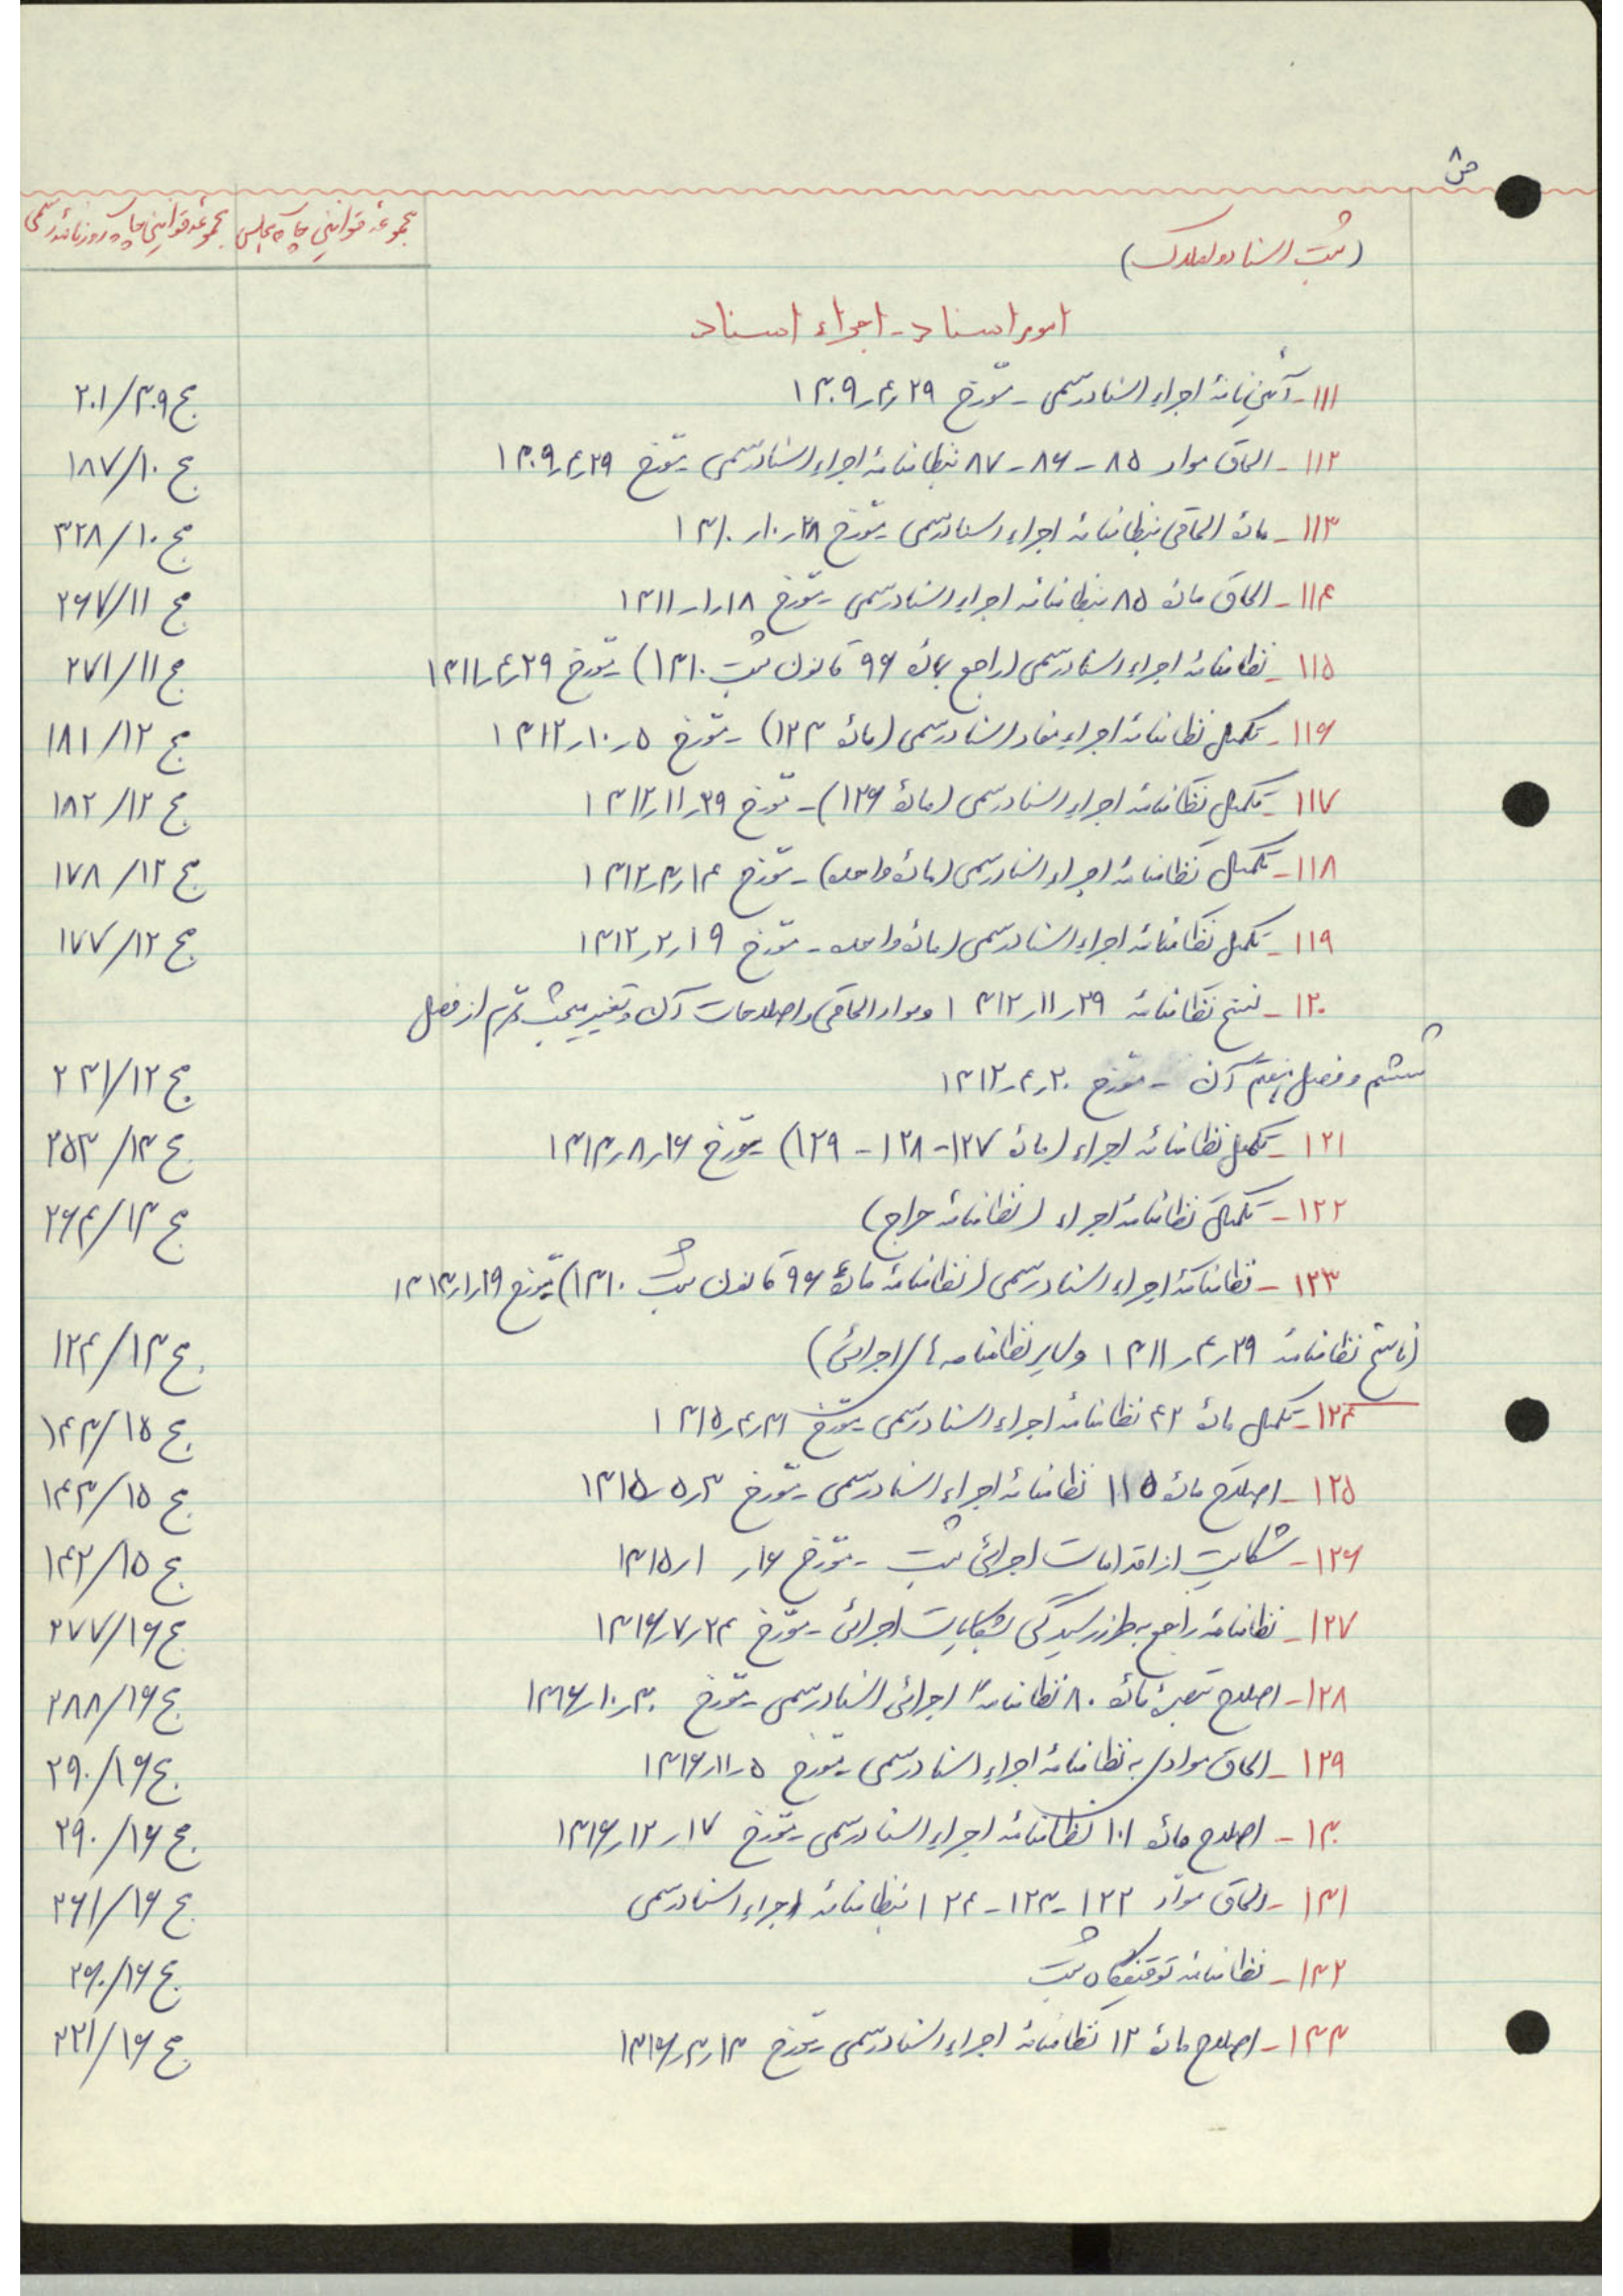 ص ۸
(ثبت اسناد و املاک) مجموعهٔ قوانین چاپ مجلس مجموعهٔ قوانین چاپ روزنامهٔ رسمی
امور اسناد - اجراء اسناد
۱۱۱- آئین‌نامهٔ اجراء اسناد رسمی - مورخ ۲۹ر۴ر۱۳۰۹ مج ۳۰۹/۲۰۱
۱۱۲- الحاق مواد ۸۵ - ۸۶ - ۸۷ بنظامنامهٔ اجراء اسناد رسمی - مورخ ۲۹ر۴ر۱۳۰۹ مج ۱۰/۱۸۷
۱۱۳- مادهٔ الحاقی بنظامنامهٔ اجراء اسناد رسمی - مورخ ۲۸ر۱۰ر۱۳۱۰ مج ۱۰/۳۲۸
۱۱۴- الحاق مادهٔ ۸۵ بنظامنامهٔ اجراء اسناد رسمی - مورخ ۱۸ر۱ر۱۳۱۱ مج ۱۱/۲۶۷
۱۱۵- نظامنامهٔ اجراء اسناد رسمی (راجع بمادهٔ ۹۶ قانون ثبت ۱۳۱۰) - مورخ ۲۹ر۴ر۱۳۱۱ مج ۱۱/۲۷۱
۱۱۶- تکمیل نظامنامهٔ اجراء مفاد اسناد رسمی (مادهٔ ۱۲۳) - مورخ ۵ر۱۰ر۱۳۱۲ مج ۱۲/۱۸۱
۱۱۷- تکمیل نظامنامهٔ اجراء اسناد رسمی (مادهٔ ۱۲۶) - مورخ ۲۹ر۱۱ر۱۳۱۲ مج ۱۲/۱۸۲
۱۱۸- تکمیل نظامنامهٔ اجراء اسناد رسمی (مادهٔ واحده) - مورخ ۱۴ر۳ر۱۳۱۲ مج ۱۲/۱۷۸
۱۱۹- تکمیل نظامنامهٔ اجراء اسناد رسمی (مادهٔ واحده - مورخ ۱۹ر۲ر۱۳۱۲ مج ۱۲/۱۷۷
۱۲۰- نسخ نظامنامهٔ ۲۹ر۱۱ر۱۳۱۲ و مواد الحاقی و اصلاحات آن و تغییر مبحث از فصل
ششم و فصل هفتم آن - مورخ ۲۰ر۴ر۱۳۱۲ مج ۱۲/۲۳۱
۱۲۱- تکمیل نظامنامهٔ اجراء (مادهٔ ۱۲۷ - ۱۲۸ - ۱۲۹) - مورخ ۱۶ر۸ر۱۳۱۳ مج ۱۳/۲۵۳
۱۲۲- تکمیل نظامنامهٔ اجراء (نظامنامهٔ حراج) مج ۱۳/۲۶۴
۱۲۳- نظامنامهٔ اجراء اسناد رسمی (نظامنامهٔ مادهٔ ۹۶ قانون ثبت ۱۳۱۰) مورخ ۱۹ر۱ر۱۳۱۳
(ناسخ نظامنامهٔ ۲۹ر۴ر۱۳۱۱ و سایر نظامنامه‌های اجرائی) مج ۱۳/۱۲۴
۱۲۴- تکمیل مادهٔ ۴۲ نظامنامهٔ اجراء اسناد رسمی - مورخ ۳۱ر۴ر۱۳۱۵ مج ۱۵/۱۴۳
۱۲۵- اصلاح مادهٔ ۱۱۵ نظامنامهٔ اجراء اسناد رسمی - مورخ ۳ر۵ر۱۳۱۵ مج ۱۵/۱۴۳
۱۲۶- شکایت از اقدامات اجرائی ثبت - مورخ ۱۶ر۱ر۱۳۱۵ مج ۱۵/۱۴۲
۱۲۷- نظامنامهٔ راجع به طرز رسیدگی بشکایات اجرائی - مورخ ۲۴ر۷ر۱۳۱۶ مج ۱۶/۲۷۷
۱۲۸- اصلاح تبصرهٔ مادهٔ ۸۰ نظامنامهٔ اجرائی اسناد رسمی - مورخ ۳۰ر۱۰ر۱۳۱۶ مج ۱۶/۲۸۸
۱۲۹- الحاق موادی به نظامنامهٔ اجراء اسناد رسمی - مورخ ۵ر۱۱ر۱۳۱۶ مج ۱۶/۲۹۰
۱۳۰- اصلاح مادهٔ ۱۰۱ نظامنامهٔ اجراء اسناد رسمی - مورخ ۱۷ر۱۲ر۱۳۱۶ مج ۱۶/۲۹۰
۱۳۱- الحاق مواد ۱۲۲ - ۱۲۳ - ۱۲۴ بنظامنامهٔ اجراء اسناد رسمی مج ۱۶/۲۶۱
۱۳۲- نظامنامهٔ توقیفگاه ثبت مج ۱۶/۲۶۰
۱۳۳- اصلاح مادهٔ ۱۲ نظامنامهٔ اجراء اسناد رسمی - مورخ ۱۳ر۳ر۱۳۱۶ مج ۱۶/۲۲۱